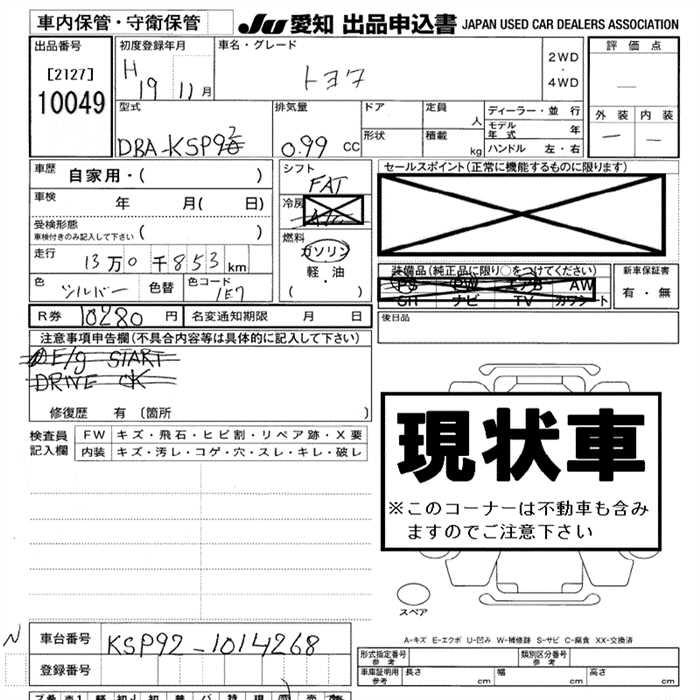 車内保管・守衛保管
JU 愛知 出品申込書 JAPAN USED CAR DEALERS ASSOCIATION
出品番号
[2127]
10049
初度登録年月
H 19 11 月
車名・グレード
トヨタ
2WD
・
4WD
評価点
―
外装 内装
― ―
型式
DBA-KSP92
排気量
0.99 CC
ドア
形状
定員 人
積載 kg
ディーラー・並行
モデル年式 年
ハンドル 左・右
車歴 自家用・( )
車検 年 月( 日)
受検形態
車検付きのみ記入して下さい ( )
走行 13万0千853km
色 シルバー 色替 色コード 1E7
シフト
FAT
冷房
A/C
燃料
ガソリン
軽・油
( ・ )
セールスポイント(正常に機能するものに限ります)
装備品(純正品に限り○をつけてください)
PS PW エアB AW
SR ナビ TV カワシート
新車保証書
有・無
後日品
R券 10280 円 名変通知期限 月 日
注意事項申告欄(不具合内容等は具体的に記入して下さい)
E/g START
DRIVE OK
修復歴 有 〔箇所 〕
検査員記入欄
FW キズ・飛石・ヒビ割・リペア跡・X要
内装 キズ・汚レ・コゲ・穴・スレ・キレ・破レ
現状車
※このコーナーは不動車も含み
ますのでご注意下さい
スペア
A-キズ E-エクボ U-凹み W-補修跡 S-サビ C-腐食 XX-交換済
N
車台番号 KSP92-1014268
登録番号
形式指定番号 参考
類別区分番号 参考
車庫証明用 参考 長さ cm 幅 cm 高さ cm